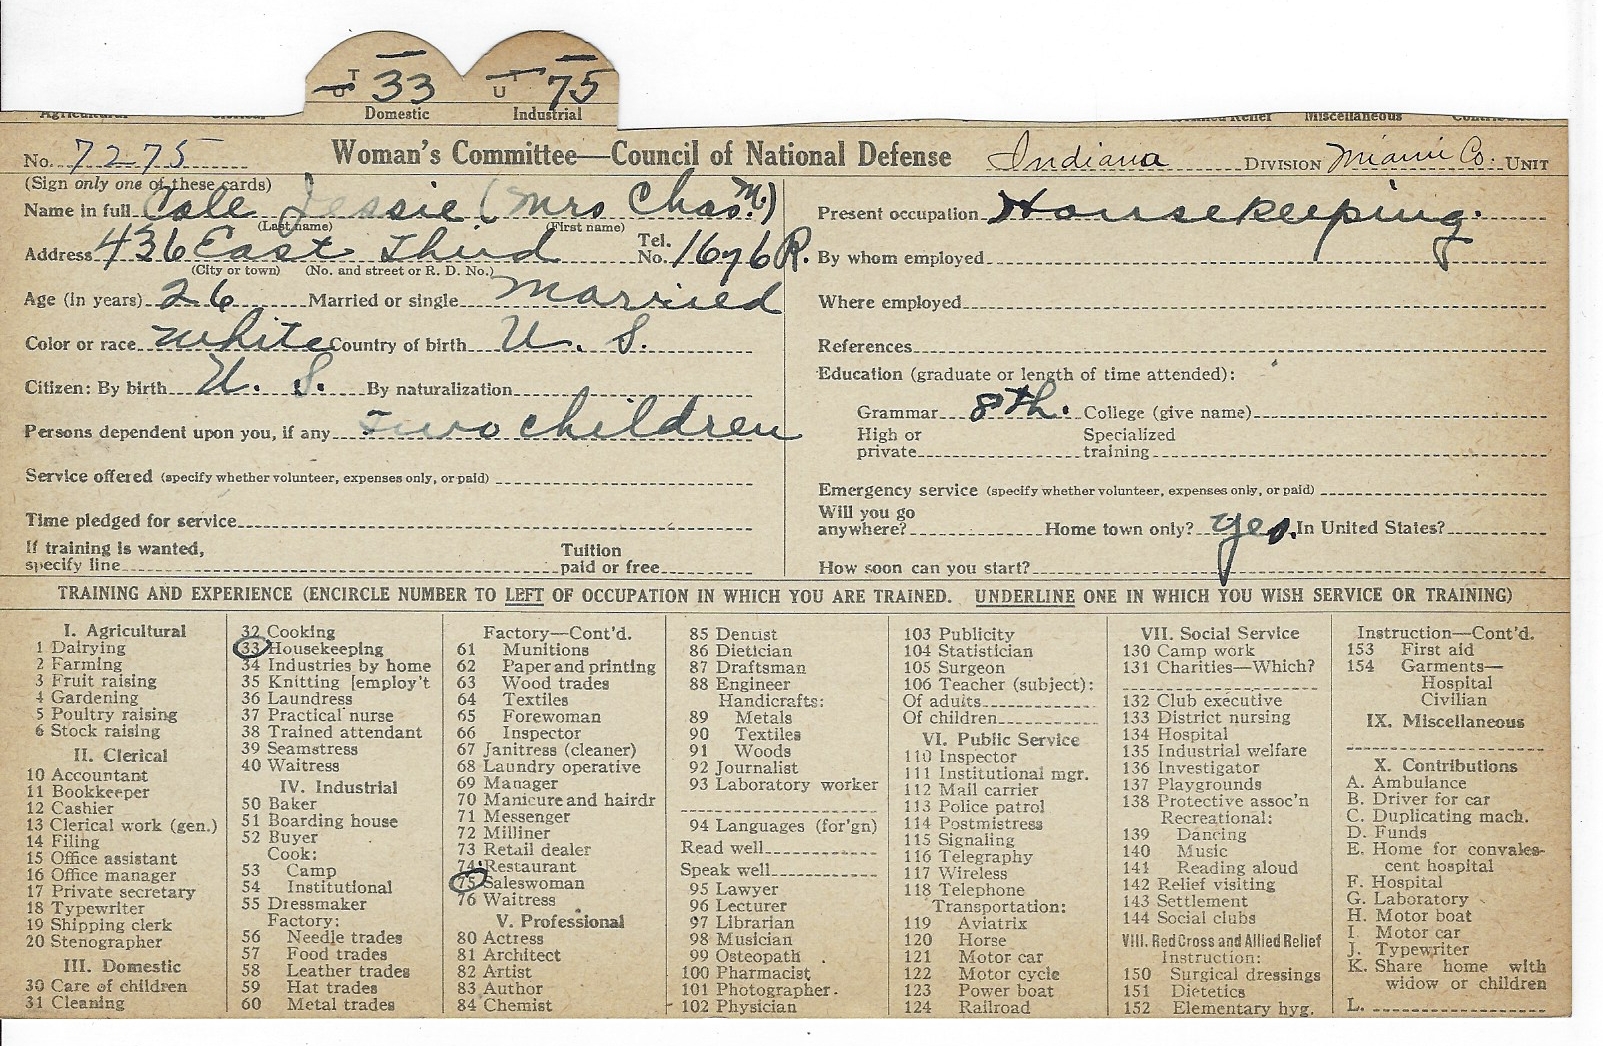 T 33 T 75
U
Domestic Industrial
Agricultural Clerical Allied Relief Miscellaneous Contributions
No. 7275 Woman's Committee—Council of National Defense Indiana DIVISION Miami Co. UNIT
(Sign only one of these cards)
Name in full Cole Jessie (Mrs Chas. M.)
(Last name) (First name)
Address 436 East Third Tel. No. 1676 R.
(City or town) (No. and street or R. D. No.)
Age (in years) 26 Married or single Married
Color or race White Country of birth U. S.
Citizen: By birth U. S. By naturalization
Persons dependent upon you, if any Two children
Service offered (specify whether volunteer, expenses only, or paid)
Time pledged for service
If training is wanted, specify line Tuition paid or free
Present occupation Housekeeping.
By whom employed
Where employed
References
Education (graduate or length of time attended):
Grammar 8th. College (give name)
High or private Specialized training
Emergency service (specify whether volunteer, expenses only, or paid)
Will you go anywhere? Home town only? yes. In United States?
How soon can you start?
TRAINING AND EXPERIENCE (ENCIRCLE NUMBER TO LEFT OF OCCUPATION IN WHICH YOU ARE TRAINED. UNDERLINE ONE IN WHICH YOU WISH SERVICE OR TRAINING)
I. Agricultural
1 Dairying
2 Farming
3 Fruit raising
4 Gardening
5 Poultry raising
6 Stock raising
II. Clerical
10 Accountant
11 Bookkeeper
12 Cashier
13 Clerical work (gen.)
14 Filing
15 Office assistant
16 Office manager
17 Private secretary
18 Typewriter
19 Shipping clerk
20 Stenographer
III. Domestic
30 Care of children
31 Cleaning
32 Cooking
33 Housekeeping
34 Industries by home
35 Knitting [employ't
36 Laundress
37 Practical nurse
38 Trained attendant
39 Seamstress
40 Waitress
IV. Industrial
50 Baker
51 Boarding house
52 Buyer
Cook:
53 Camp
54 Institutional
55 Dressmaker
Factory:
56 Needle trades
57 Food trades
58 Leather trades
59 Hat trades
60 Metal trades
Factory—Cont'd.
61 Munitions
62 Paper and printing
63 Wood trades
64 Textiles
65 Forewoman
66 Inspector
67 Janitress (cleaner)
68 Laundry operative
69 Manager
70 Manicure and hairdr
71 Messenger
72 Milliner
73 Retail dealer
74 Restaurant
75 Saleswoman
76 Waitress
V. Professional
80 Actress
81 Architect
82 Artist
83 Author
84 Chemist
85 Dentist
86 Dietician
87 Draftsman
88 Engineer
Handicrafts:
89 Metals
90 Textiles
91 Woods
92 Journalist
93 Laboratory worker
94 Languages (for'gn)
Read well
Speak well
95 Lawyer
96 Lecturer
97 Librarian
98 Musician
99 Osteopath
100 Pharmacist
101 Photographer
102 Physician
103 Publicity
104 Statistician
105 Surgeon
106 Teacher (subject):
Of adults
Of children
VI. Public Service
110 Inspector
111 Institutional mgr.
112 Mail carrier
113 Police patrol
114 Postmistress
115 Signaling
116 Telegraphy
117 Wireless
118 Telephone
Transportation:
119 Aviatrix
120 Horse
121 Motor car
122 Motor cycle
123 Power boat
124 Railroad
VII. Social Service
130 Camp work
131 Charities—Which?
132 Club executive
133 District nursing
134 Hospital
135 Industrial welfare
136 Investigator
137 Playgrounds
138 Protective assoc'n
Recreational:
139 Dancing
140 Music
141 Reading aloud
142 Relief visiting
143 Settlement
144 Social clubs
VIII. Red Cross and Allied Relief
Instruction:
150 Surgical dressings
151 Dietetics
152 Elementary hyg.
Instruction—Cont'd.
153 First aid
154 Garments—
Hospital
Civilian
IX. Miscellaneous
X. Contributions
A. Ambulance
B. Driver for car
C. Duplicating mach.
D. Funds
E. Home for convales-
cent hospital
F. Hospital
G. Laboratory
H. Motor boat
I. Motor car
J. Typewriter
K. Share home with
widow or children
L.